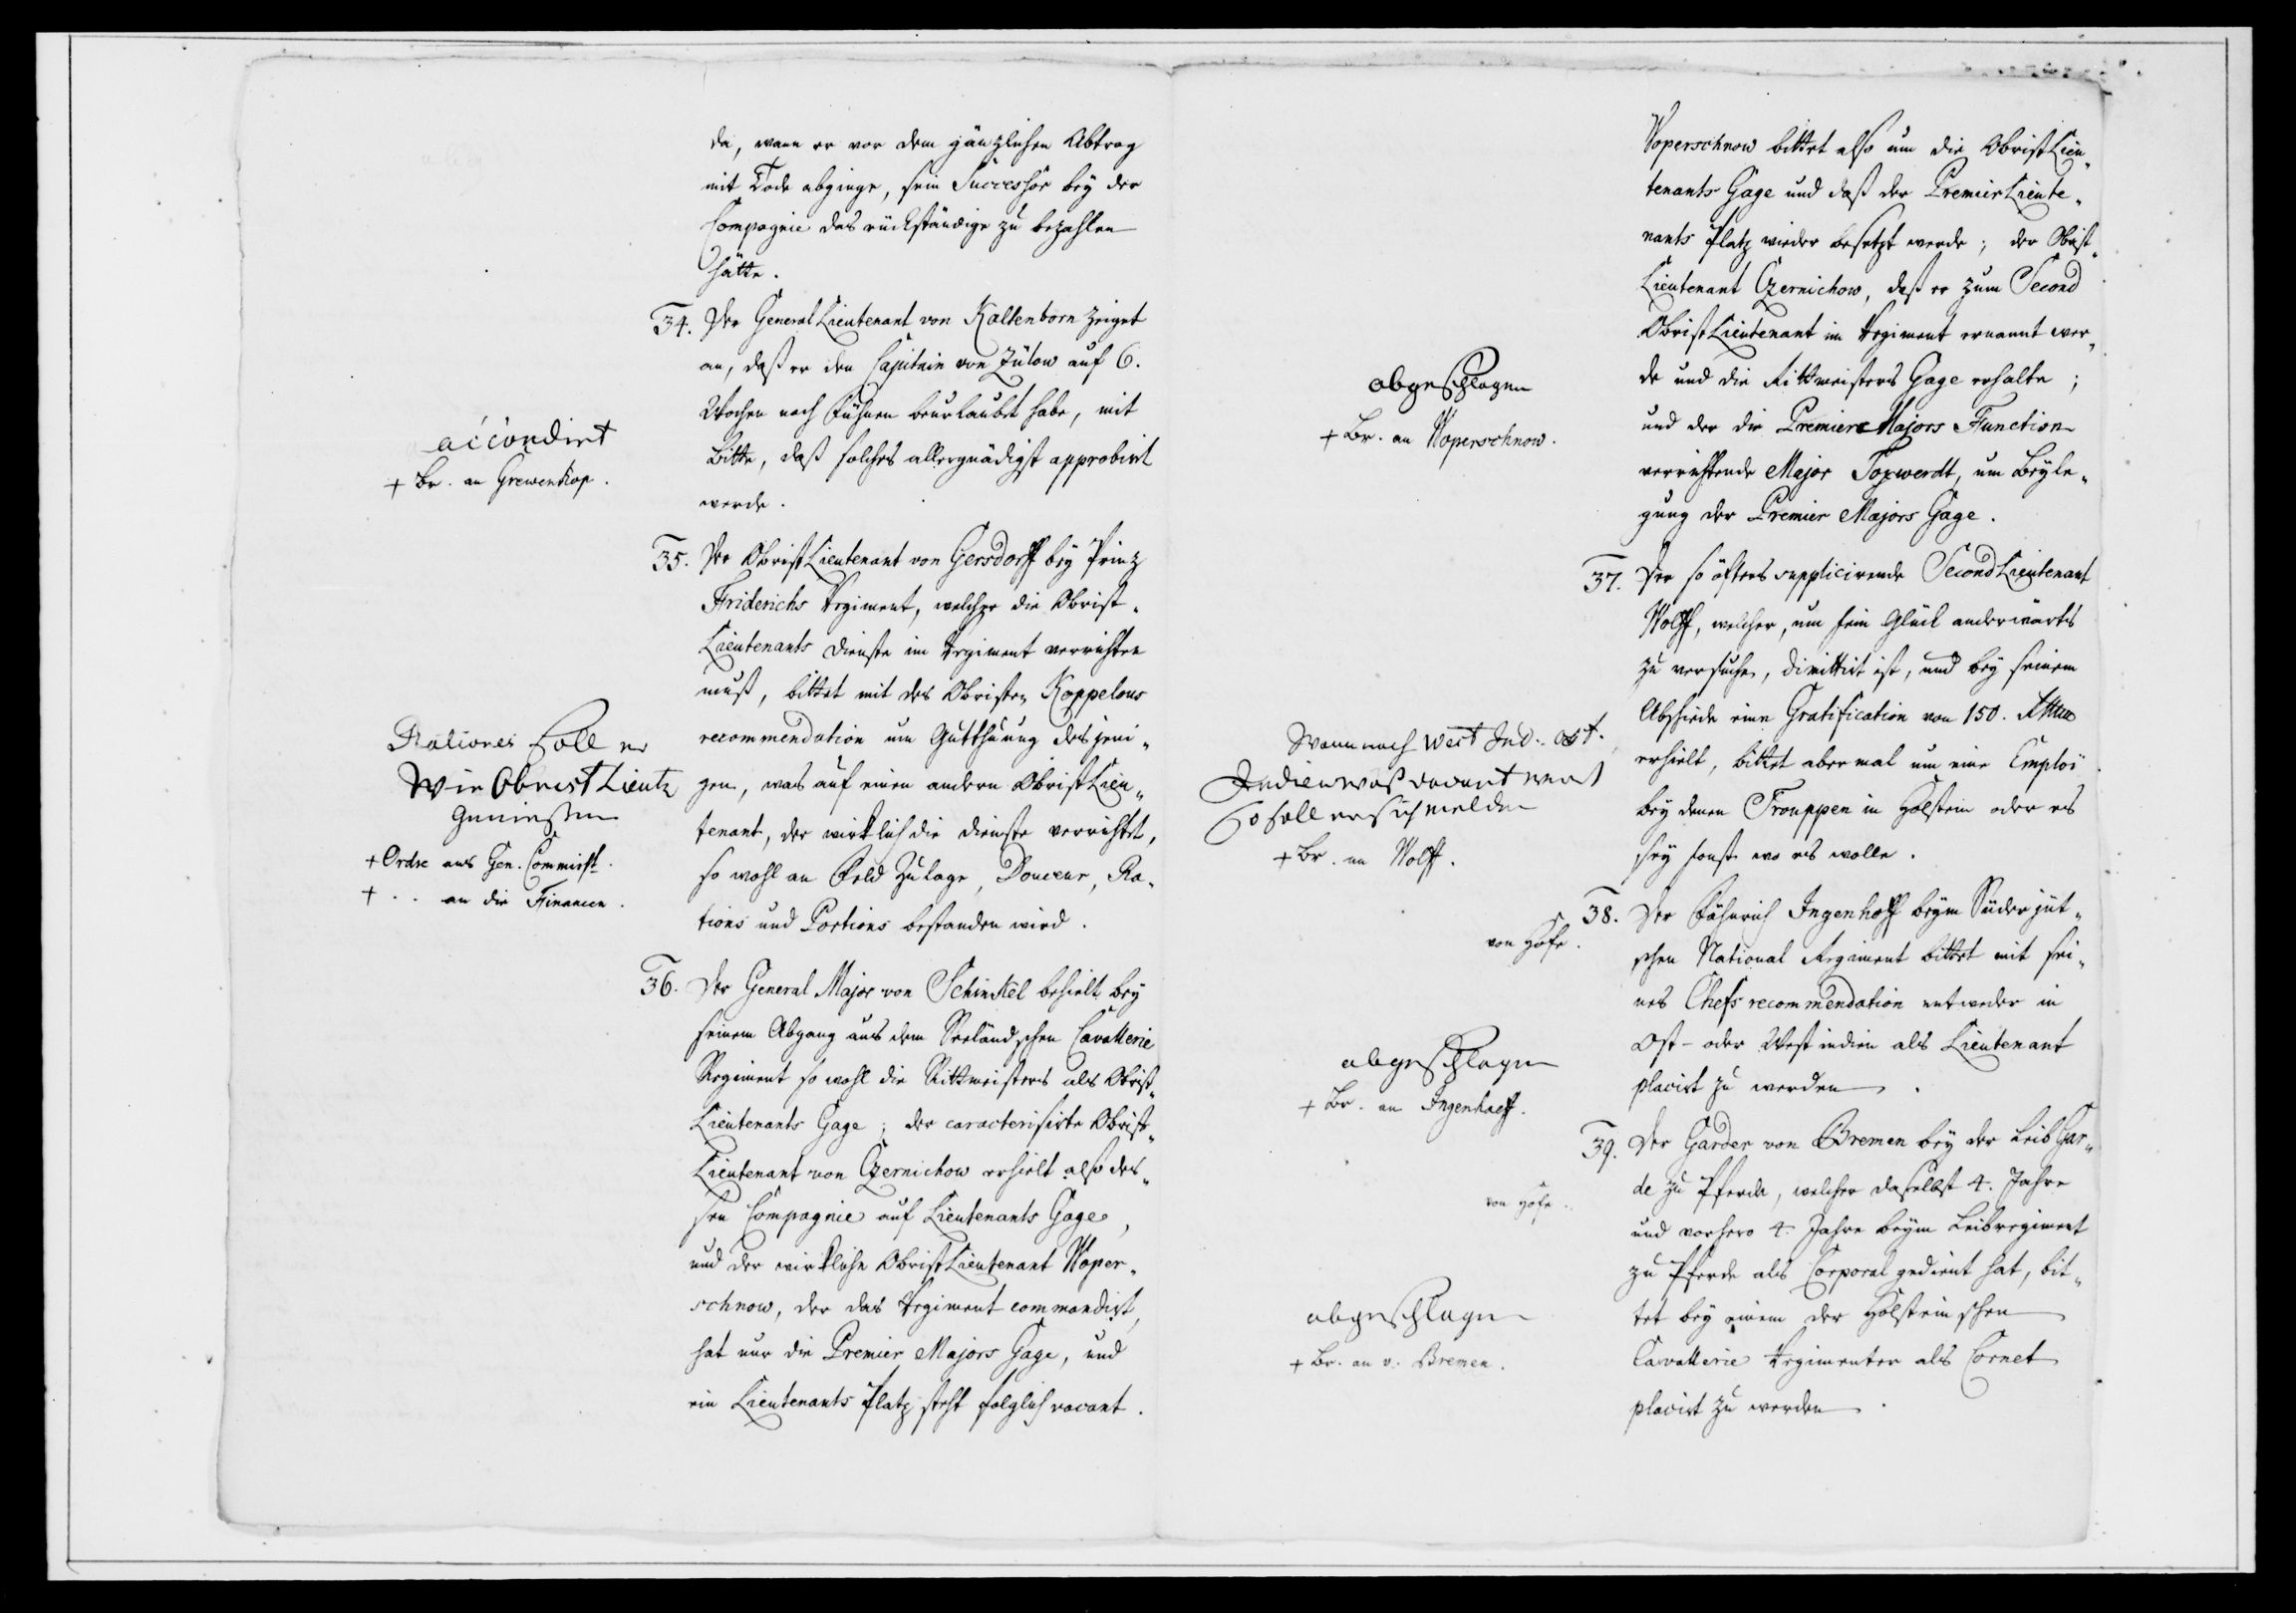 da, wann er vor dem gänzlichen Abtrag
mit Tode abginge, sein Successor bey der
Compagnie das rückständige zu bezahlen
hätte.
34. Der General Lieutenant von Kaltenborn zeiget
an, daß er den Capitain von Zülow auf 6.
Wochen nach Fühnen beurlaubt habe, mit
Bitte, daß solches allergnädigst approbirt
werde.
accordirt
+ Br. an Grewenkop.
35. Der Obrist Lieutenant von Gersdorff bey Prinz
Friderichs Regiment, welcher die Obrist„
Lieutenants Dienste im Regiment verrichten
muß, bittet mit des Obristen Koppelous
recommendation um Gutthuung desjeni„
gen, was auf einen andern Obrist Lieu„
tenant, der wirklich die Dienste verrichtet,
so wohl an Feld Zulage, Douceur, Ra„
tions und Portions bestanden wird.
Rationes soll er
wie Obrist Lieutn
geniessen
+ Ordre ans Gen. Commisst.
+ .. an die Financen.
36. Der General Major von Schinkel behielt bey
seinem Abgang aus dem Seeländschen Cavallerie
Regiment so wohl die Rittmeisters als Obrist„
Lieutenants Gage; der caracterisirte Obrist„
Lieutenant von Czernichow erhielt also des„
sen Compagnie auf Lieutenants Gage,
und der wirkliche Obrist Lieutenant Woper„
schnow, der das Regiment commandirt,
hat nur die Premier Majors Gage, und
ein Lieutenants Platz steht folglich vacant.
Woperschnow bittet also um die Obrist Lieu„
tenants Gage und daß der Premier Lieute„
nants Platz wieder besetzt werde; der Obrist„
Lieutenant Czernichow, daß er zum Second
Obrist Lieutenant im Regiment ernannt wer„
de und die Rittmeisters Gage erhalte;
und der die Premier Majors Function
verrichtende Major Toxwerdt, um Beyle„
gung der Premier Majors Gage.
abgeschlagen
+ Br. an Woperschnow.
37. Der so öfters supplicirende Second Lieutenant
Wolff, welcher, um sein Glück anderwärts
zu versuchen, dimittirt ist, und bey seinem
Abschiede eine Gratification von 150. Rthlr
erhielt, bittet abermal um eine Emploi
bey denen Trouppen in Holstein oder es
sey sonst wo es wolle.
Wann nach West Ind. Ost.
Indien waß vacant wert
so soll er sich melden
+ Br. an Wolff.
38. Der Fähnrich Ingenhoff beym Süderjüt„
schen National Regiment bittet mit sei„
nes Chefs recommendation entweder in
Ost- oder Westindien als Lieutenant
placirt zu werden.
von Hofe.
abgeschlagen
+ Br. an Ingenhoff.
39. Der Garder von Bremen bey der Leib Gar„
de zu Pferde, welcher daselbst 4. Jahre
und vorhero 4. Jahre beym Leibregiment
zu Pferde als Corporal gedient hat, bit„
tet bey einem der Holsteinschen
Cavallerie Regimenter als Cornet
placirt zu werden.
von Hofe.
abgeschlagen
+ Br. an v. Bremen.